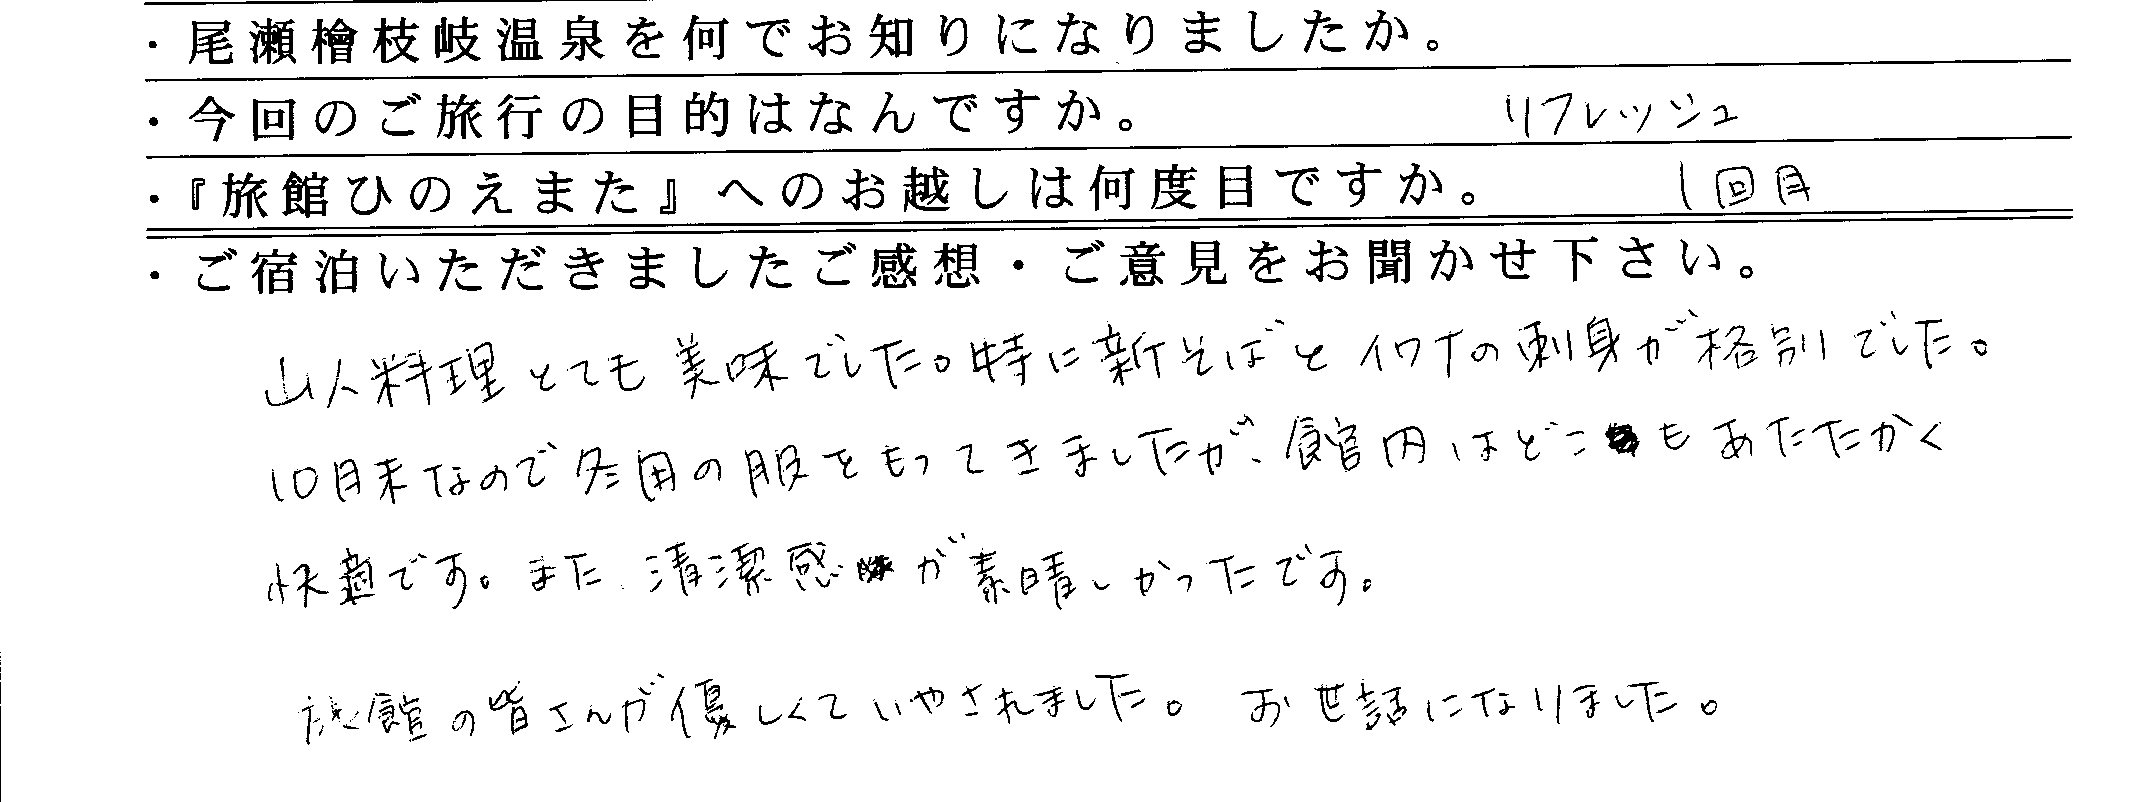 ・尾瀬檜枝岐温泉を何でお知りになりましたか。
・今回のご旅行の目的はなんですか。 リフレッシュ
・『旅館ひのえまた』へのお越しは何度目ですか。 1回目
・ご宿泊いただきましたご感想・ご意見をお聞かせ下さい。
山人料理とても美味でした。特に新そばとイワナの刺身が格別でした。
10月末なので冬用の服をもってきましたが、館内はどこもあたたかく
快適です。また、清潔感が素晴しかったです。
旅館の皆さんが優しくていやされました。お世話になりました。